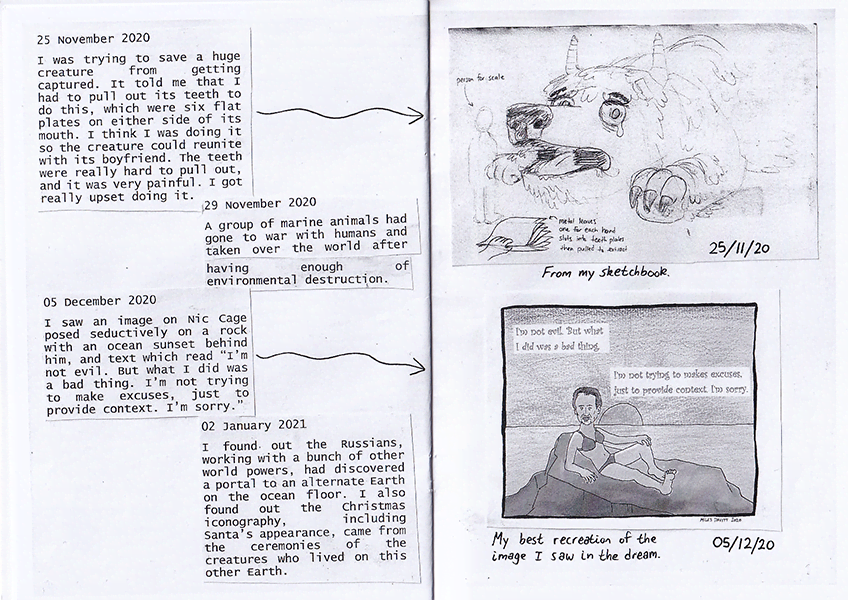 25 November 2020
I was trying to save a huge
creature from getting
captured. It told me that I
had to pull out its teeth to
do this, which were six flat
plates on either side of its
mouth. I think I was doing it
so the creature could reunite
with its boyfriend. The teeth
were really hard to pull out,
and it was very painful. I got
really upset doing it.
29 November 2020
A group of marine animals had
gone to war with humans and
taken over the world after
having enough of
environmental destruction.
05 December 2020
I saw an image on Nic Cage
posed seductively on a rock
with an ocean sunset behind
him, and text which read “I’m
not evil. But what I did was
a bad thing. I’m not trying
to make excuses, just to
provide context. I’m sorry.”
02 January 2021
I found out the Russians,
working with a bunch of other
world powers, had discovered
a portal to an alternate Earth
on the ocean floor. I also
found out the Christmas
iconography, including
Santa’s appearance, came from
the ceremonies of the
creatures who lived on this
other Earth.
person for scale
metal leaves
one for each hand
slots into teeth plates
then pulled to extract
25/11/20
From my sketchbook.
I'm not evil. But what
I did was a bad thing.
I'm not trying to makes excuses,
just to provide context. I'm sorry.
My best recreation of the
image I saw in the dream.
05/12/20